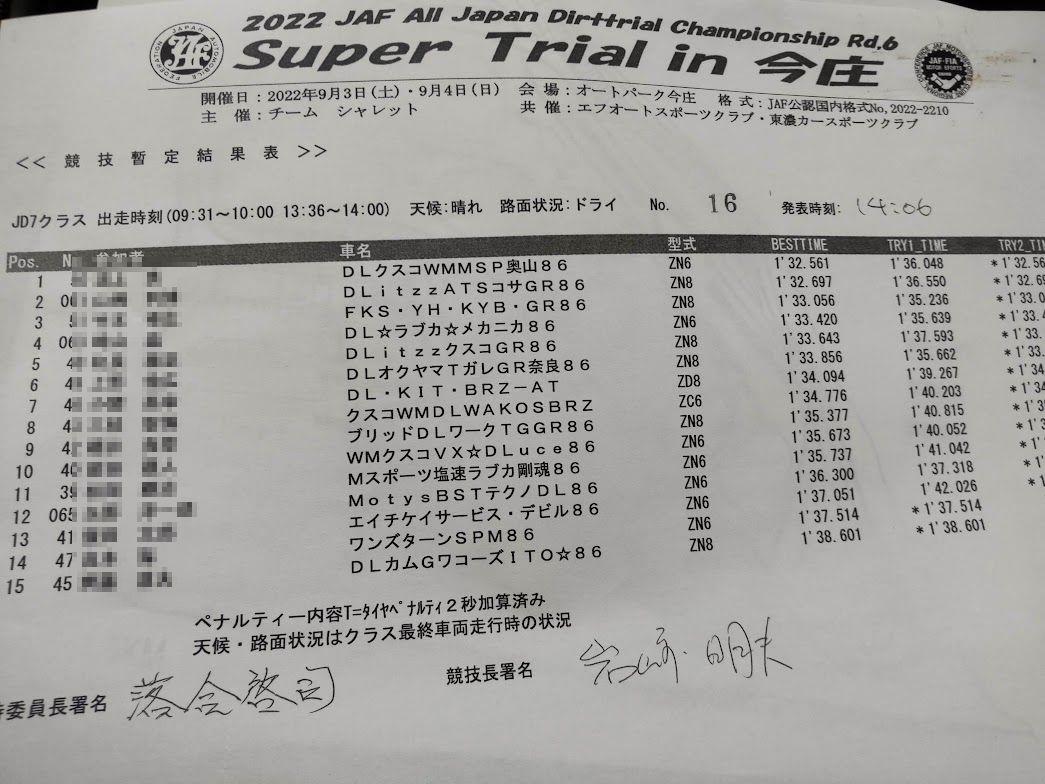 2022 JAF All Japan Dirttrial Championship Rd.6
Super Trial in 今庄
JAPAN AUTOMOBILE FEDERATION
JAF
JAF-FIA
MOTOR SPORTS
開催日：2022年9月3日(土)・9月4日(日) 会 場：オートパーク今庄 格 式：JAF公認国内格式No,2022-2210
主 催：チーム シャレット 共 催：エフオートスポーツクラブ・東濃カースポーツクラブ
<< 競 技 暫 定 結 果 表 >>
JD7クラス 出走時刻(09:31～10:00 13:36～14:00) 天候：晴れ 路面状況：ドライ No. 16 発表時刻: 14:06
Pos. 車名 型式 BESTTIME TRY1_TIME TRY2_TI
1 ＤＬクスコＷＭＭＳＰ奥山８６ ZN6 1'32.561 1'36.048 *1'32.56
2 06 ＤＬｉｔｚｚＡＴＳコサＧＲ８６ ZN8 1'32.697 1'36.550 *1'32.69
3 ＦＫＳ・ＹＨ・ＫＹＢ・ＧＲ８６ ZN8 1'33.056 1'35.236 *1'33.0
4 06 ＤＬ☆ラブカ☆メカニカ８６ ZN6 1'33.420 1'35.639 *1'33.4
5 4 ＤＬｉｔｚｚクスコＧＲ８６ ZN8 1'33.643 1'37.593 *1'33.
6 4 ＤＬオクヤマＴガレＧＲ奈良８６ ZN8 1'33.856 1'35.662 *1'33.
7 4 ＤＬ・ＫＩＴ・ＢＲＺ－ＡＴ ZD8 1'34.094 1'39.267 *1'34
8 4 クスコＷＭＤＬＷＡＫＯＳＢＲＺ ZC6 1'34.776 1'40.203 *1'34
9 4 ブリッドＤＬワークＴＧＧＲ８６ ZN8 1'35.377 1'40.815 *1'3
10 40 ＷＭクスコＶＸ☆ＤＬｕｃｅ８６ ZN6 1'35.673 1'40.052 *1'3
11 39 Ｍスポーツ塩速ラブカ剛魂８６ ZN6 1'35.737 1'41.042 *1'
12 065 ＭｏｔｙｓＢＳＴテクノＤＬ８６ ZN6 1'36.300 1'37.318 *1'
13 41 エイチケイサービス・デビル８６ ZN6 1'37.051 1'42.026 *1
14 47 ワンズターンＳＰＭ８６ ZN6 1'37.514 *1'37.514
15 45 ＤＬカムＧワコーズＩＴＯ☆８６ ZN8 1'38.601 *1'38.601
ペナルティー内容T=ﾀｲﾔﾍﾟﾅﾙﾃｨ２秒加算済み
天候・路面状況はクラス最終車両走行時の状況
委員長署名 落合啓司 競技長署名 岩崎 明夫